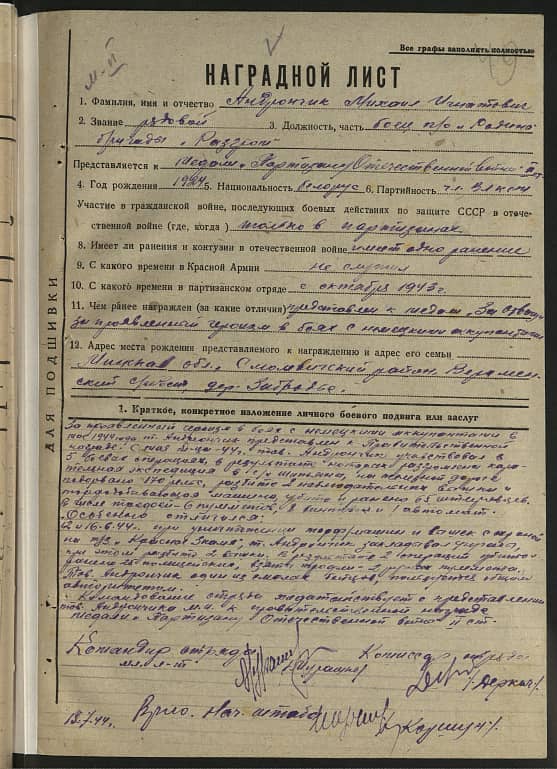 м-II
Все графы заполнять полностью
НАГРАДНОЙ ЛИСТ
1. Фамилия, имя и отчество Андрончик Михаил Игнатович
2. Звание рядовой 3. Должность, часть боец п/о
бригады „Разгром“
Представляется к медали „Партизану Отечественной войны“ II ст.
4. Год рождения 1924 5. Национальность белорус 6. Партийность чл. ВЛКСМ
Участие в гражданской войне, последующих боевых действиях по защите СССР в отече-
ственной войне (где, когда) только в партизанах
8. Имеет ли ранения и контузии в отечественной войне имеет одно ранение
9. С какого времени в Красной Армии не служил
10. С какого времени в партизанском отряде с октября 1943 г.
11. Чем ранее награжден (за какие отличия) представлен к медали „За отвагу“
за проявленный героизм в боях с немецкими оккупантами
12. Адрес места рождения представляемого к награждению и адрес его семьи
Минская обл., Смолевичский район,
дер.
ДЛЯ ПОДШИВКИ
1. Краткое, конкретное изложение личного боевого подвига или заслуг
За проявленный героизм в боях с немецкими оккупантами в
1944 году т. Андрончик представлен к Правительственной
награде. С мая 44 г. тов. Андрончик участвовал в
5 боевых операциях, в результате которых разгромлена кара-
тельная экспедиция в на железной дороге
подорвано 170 рельс, разбито 2 наблюдательных вышки и
машина, убито и ранено 65
В числе трофеев 6 винтовок и 1 автомат.
Особенно отличился:
2 и 16.6.44 г. при уничтожении и вышек с охраной
на т. Андрончик
при этом разбито 2 вышки. В результате 2 операций убито и
ранено 25 взяты трофеи - 2
Тов. Андрончик один из смелых бойцов, пользуется общим
авторитетом.
Командование отряда ходатайствует о представлении
тов. Андрончика М.И. к правительственной награде
медали „Партизану Отечественной войны“ II ст.
Командир отряда Комиссар отряда
мл. л-т /Деркач/
18.7.44 г. Врио. Нач. штаба